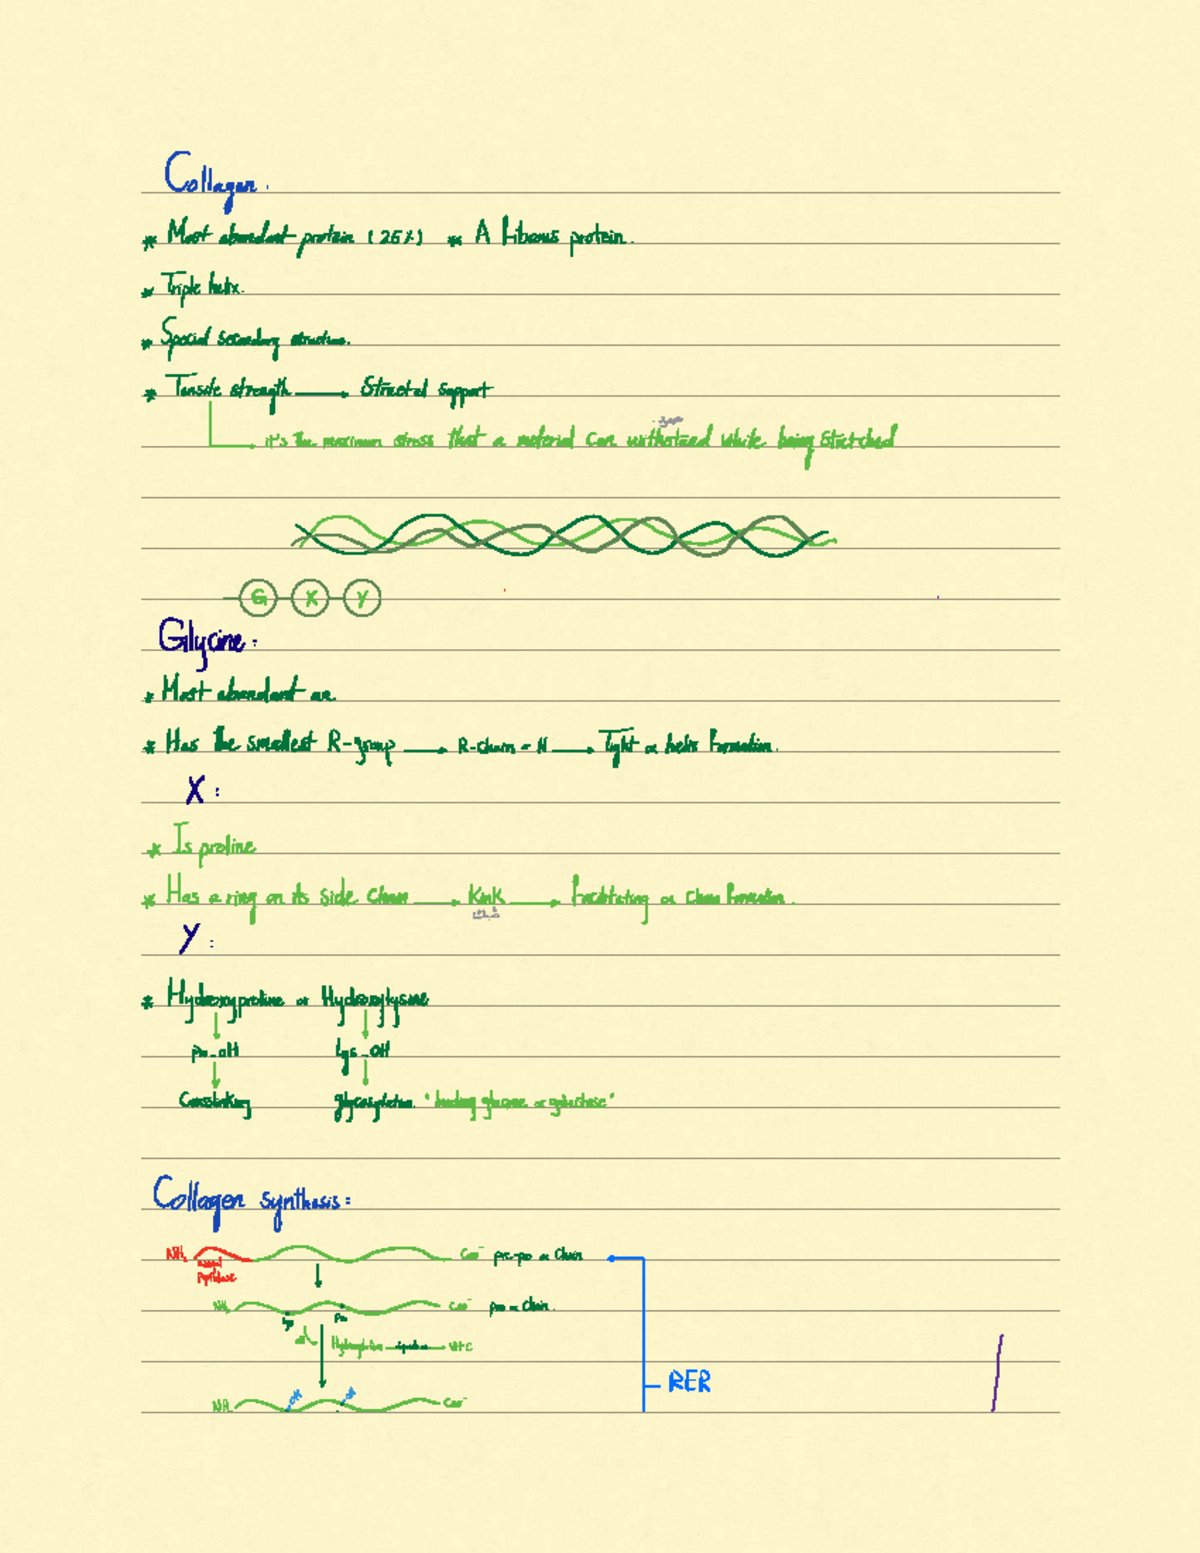 Collagen:
* Most abundant protein (25%) * A Fibrous protein.
* Triple helix.
* Special secondary structure.
* Tensile strength → Structal support
it's the maximum stress that a material can while being stretched
G X Y
Glycine:
* Most abundant aa.
* Has the smallest R-group → R-chain = H → Tight α helix Formation.
X:
* Is proline
* Has a ring on its side chain → Kink → Facilitating α chain Formation.
Y:
* Hydroxyproline or Hydroxylysine
pro-OH Lys-OH
Crosslinking glycosylation. "binding glucose or galactose"
Collagen synthesis:
NH₂ COO⁻ pre-pro α chain
peptidase
NH₂ COO⁻ pro α chain.
Lys Pro
Hydroxylation Vit C
RER
NH₂ OH OH COO⁻